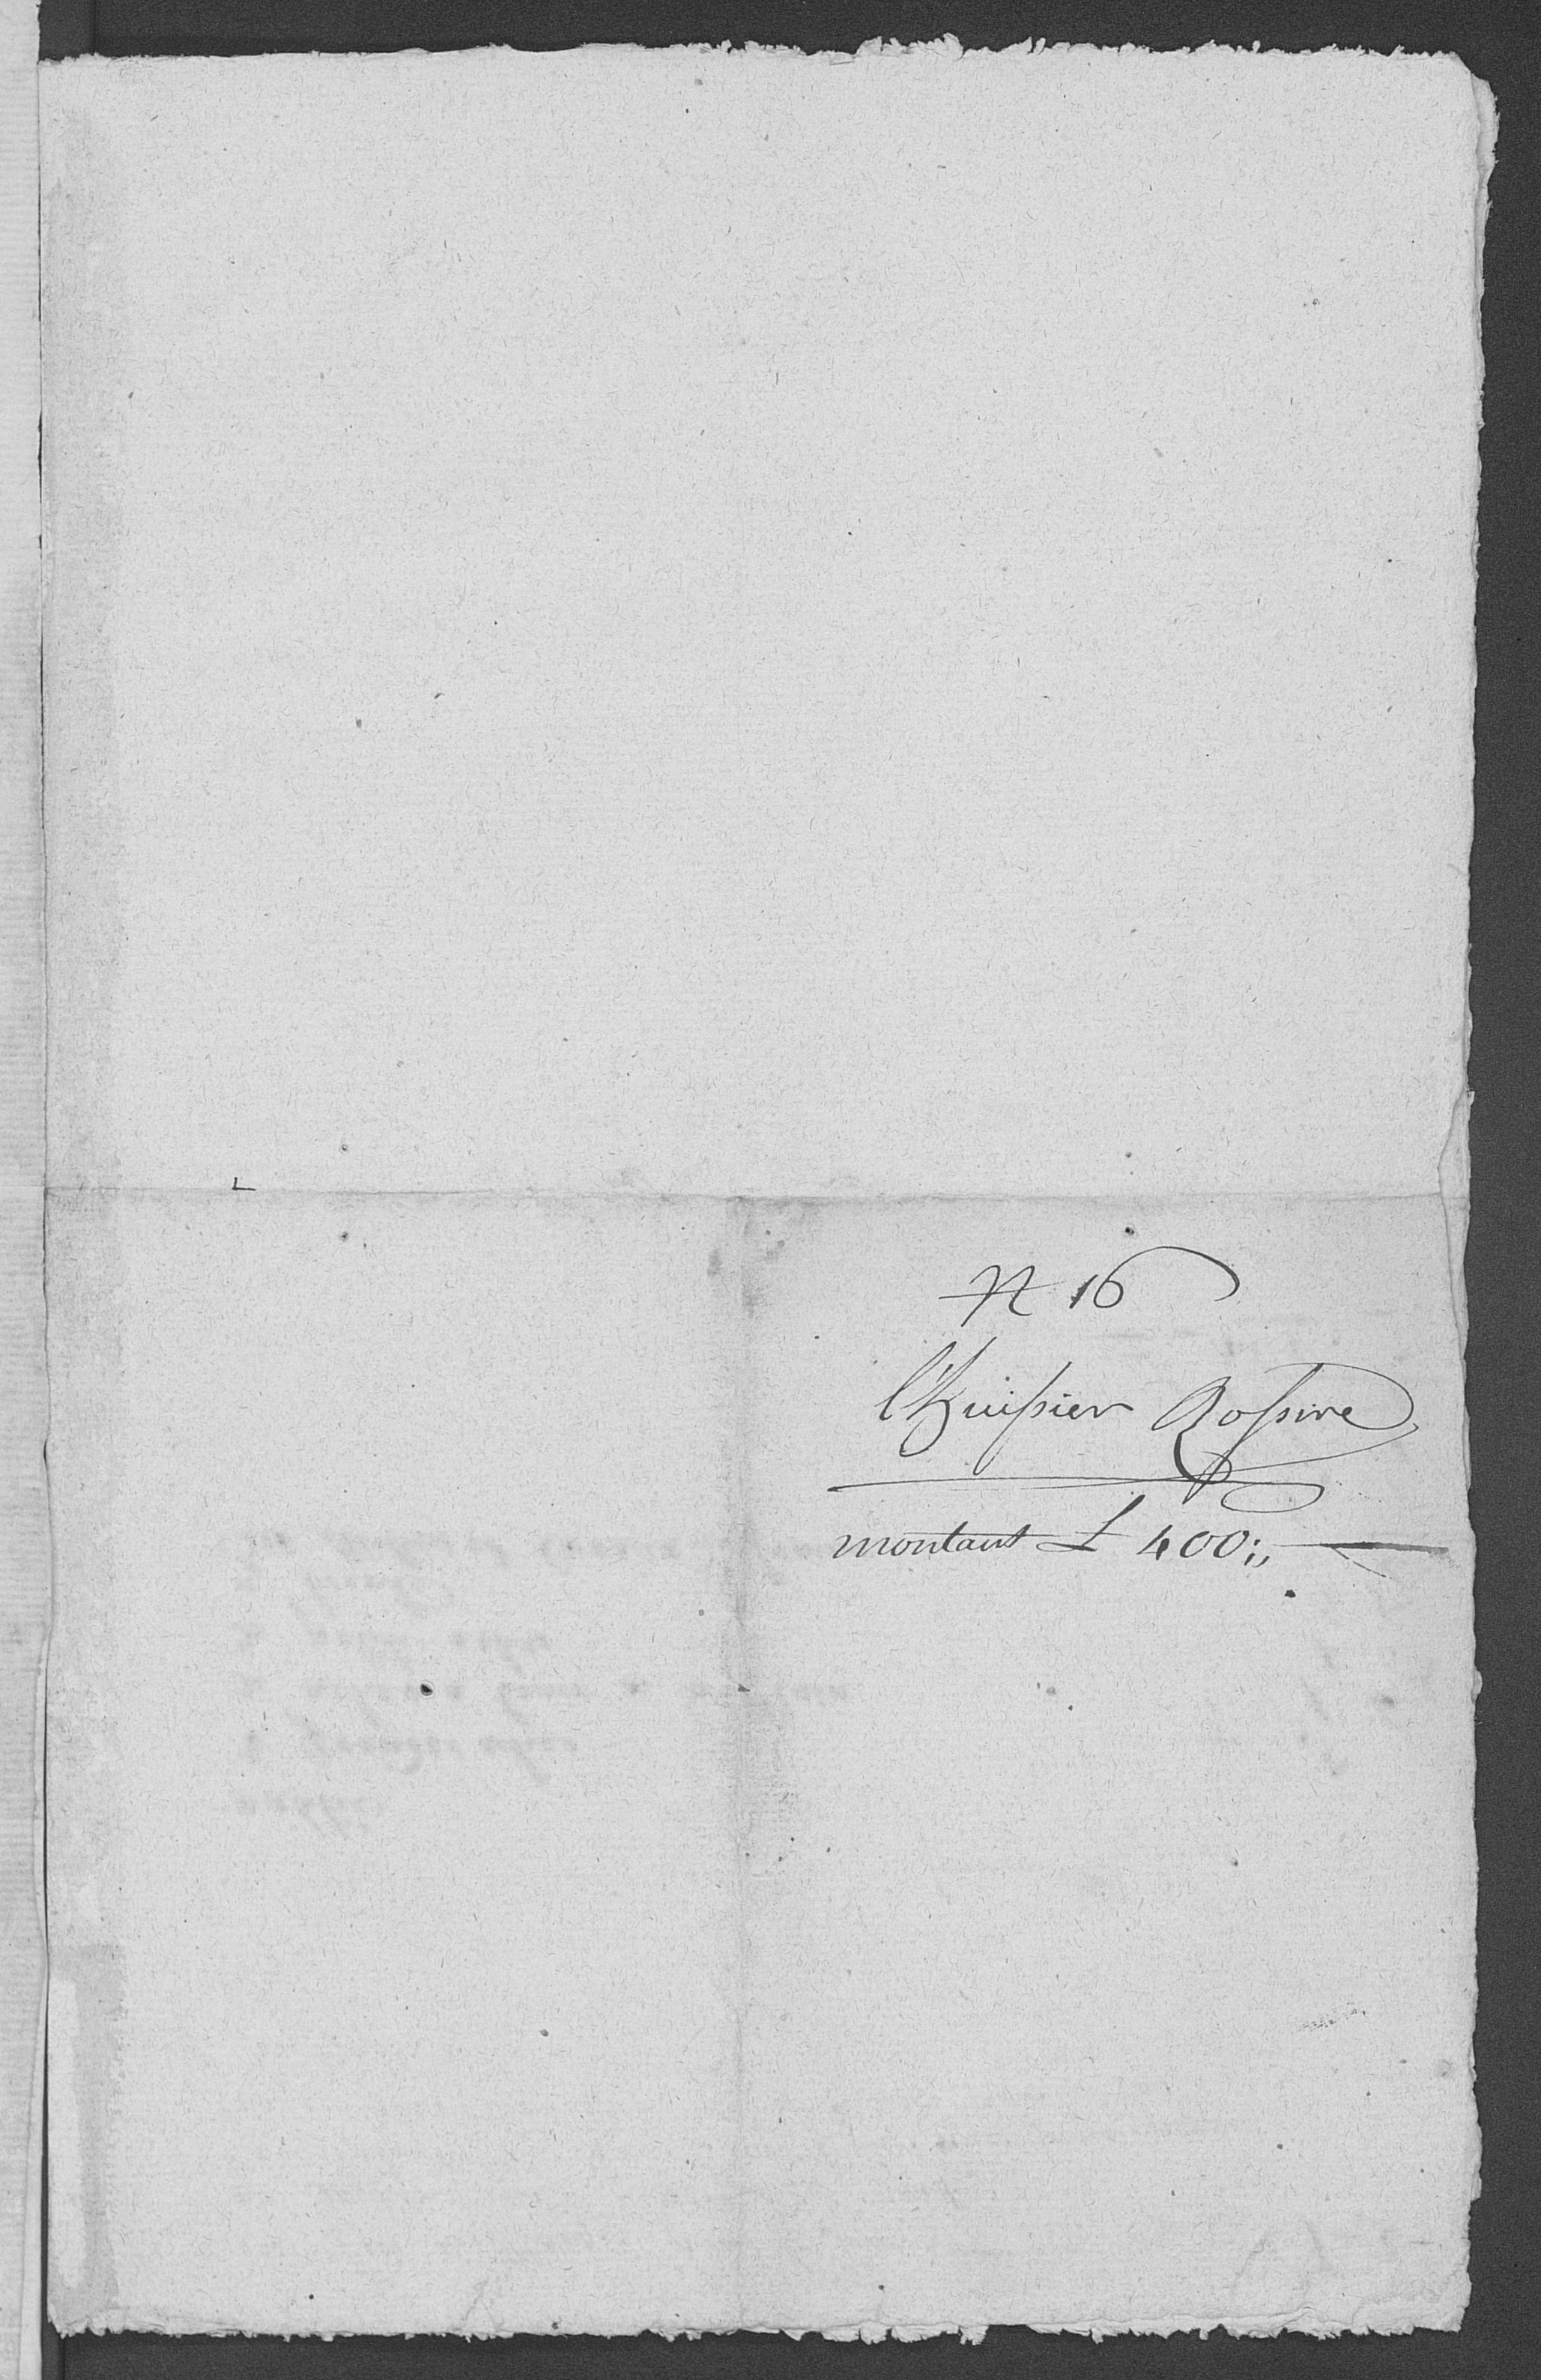 N 16
l'huissier Rossire
montant £ 400:,,